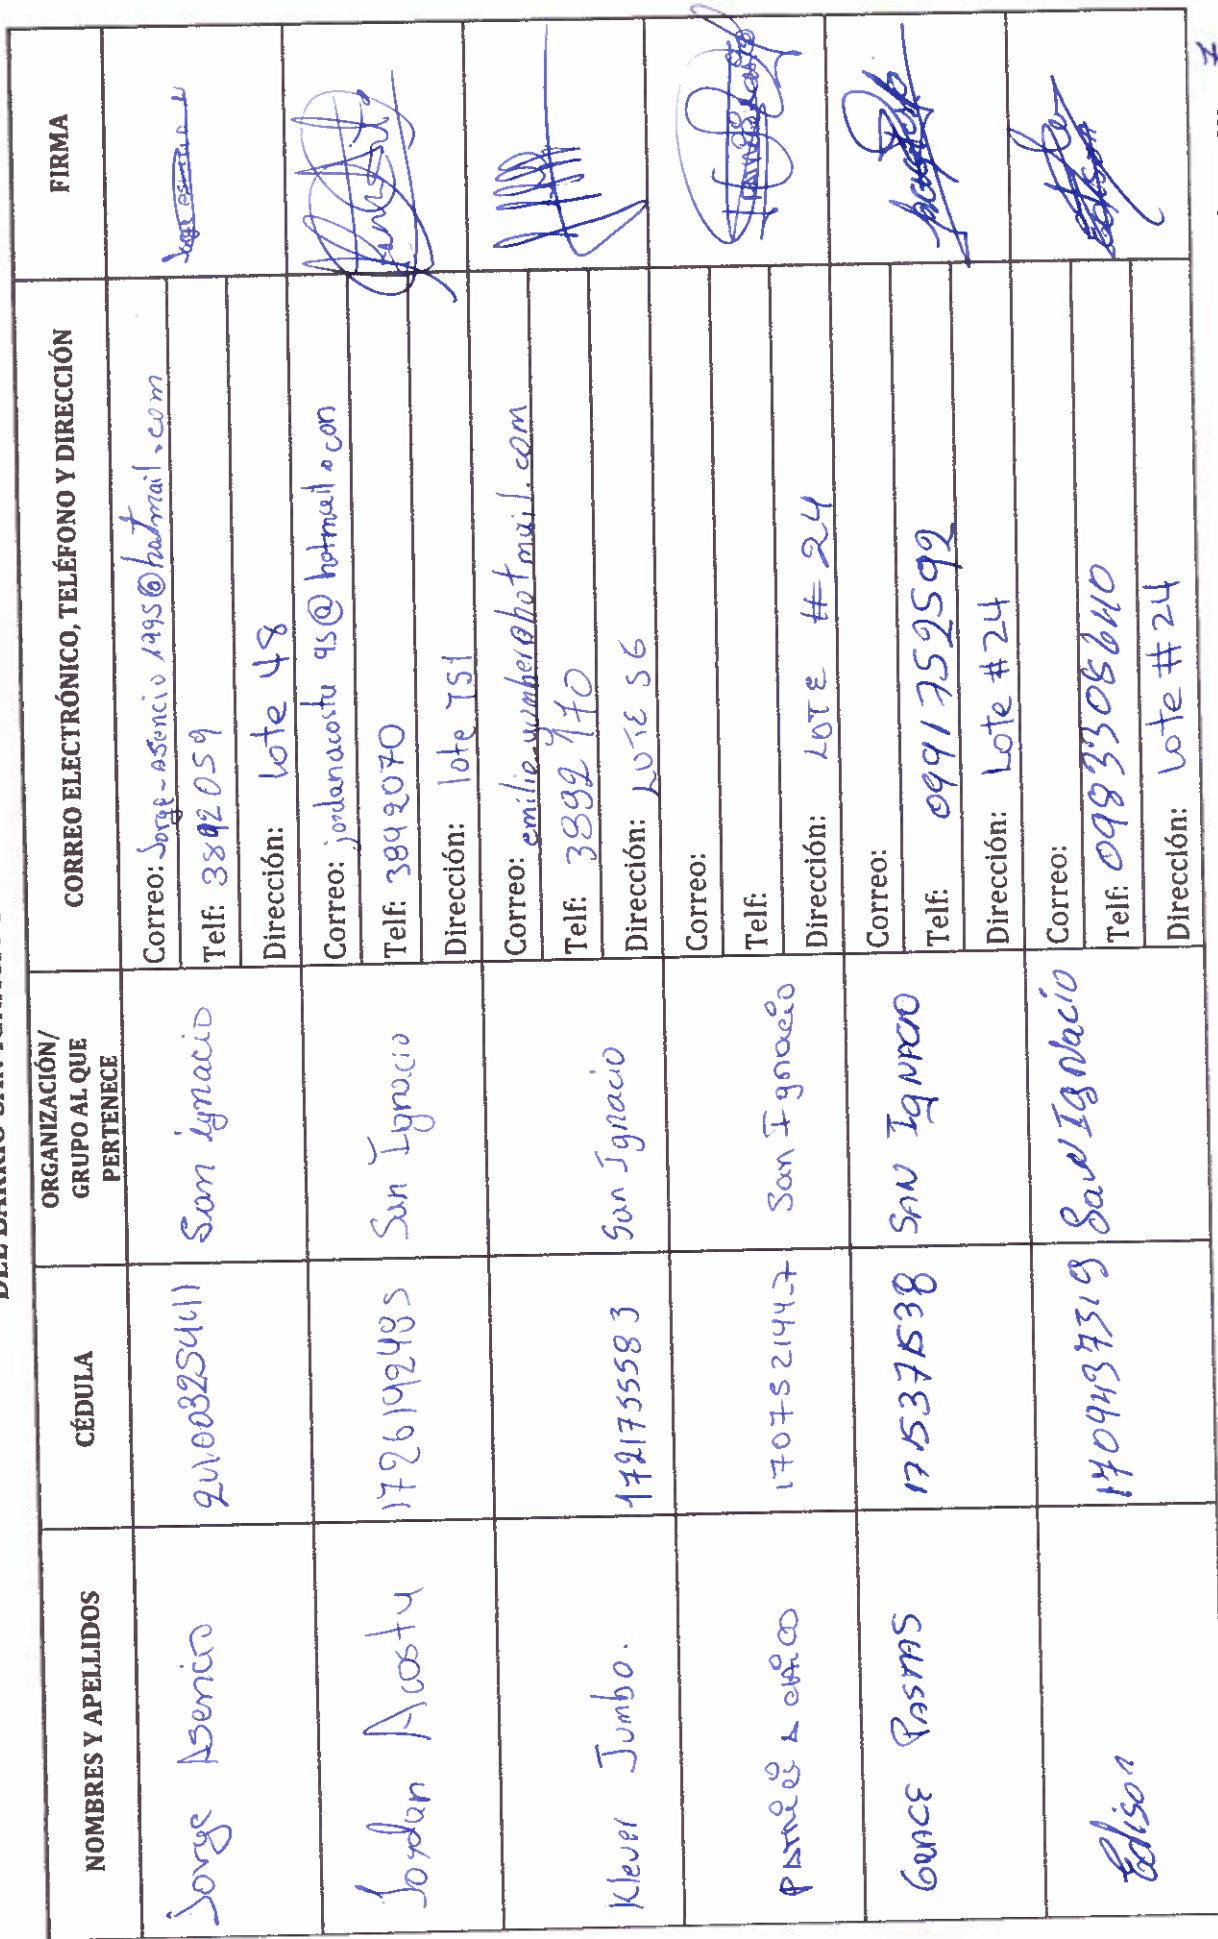 NOMBRES Y APELLIDOS
CÉDULA
ORGANIZACIÓN/
GRUPO AL QUE
PERTENECE
CORREO ELECTRÓNICO, TELÉFONO Y DIRECCIÓN
FIRMA
Jorge Asencio
San ignacio
Correo: Jorge-asencio1995@hotmail.com
Telf: 3892059
Dirección: Lote 48
Jordan Acosta
1726192485
San Ignacio
Correo: jordanacosta95@hotmail.con
Telf: 3892070
Dirección: lote
Klever Jumbo.
172175558 3
San Ignacio
Correo:
Telf: 3892
Dirección: LOTE 56
170752144-7
San Ignacio
Correo:
Telf:
Dirección: LOTE # 24
GRACE PASTAS
1715371538
SAN IgNACIO
Correo:
Telf: 0991752592
Dirección: Lote #24
Edison
1709437319
San IgNacio
Correo:
Telf: 0983308640
Dirección: Lote #24
Edison